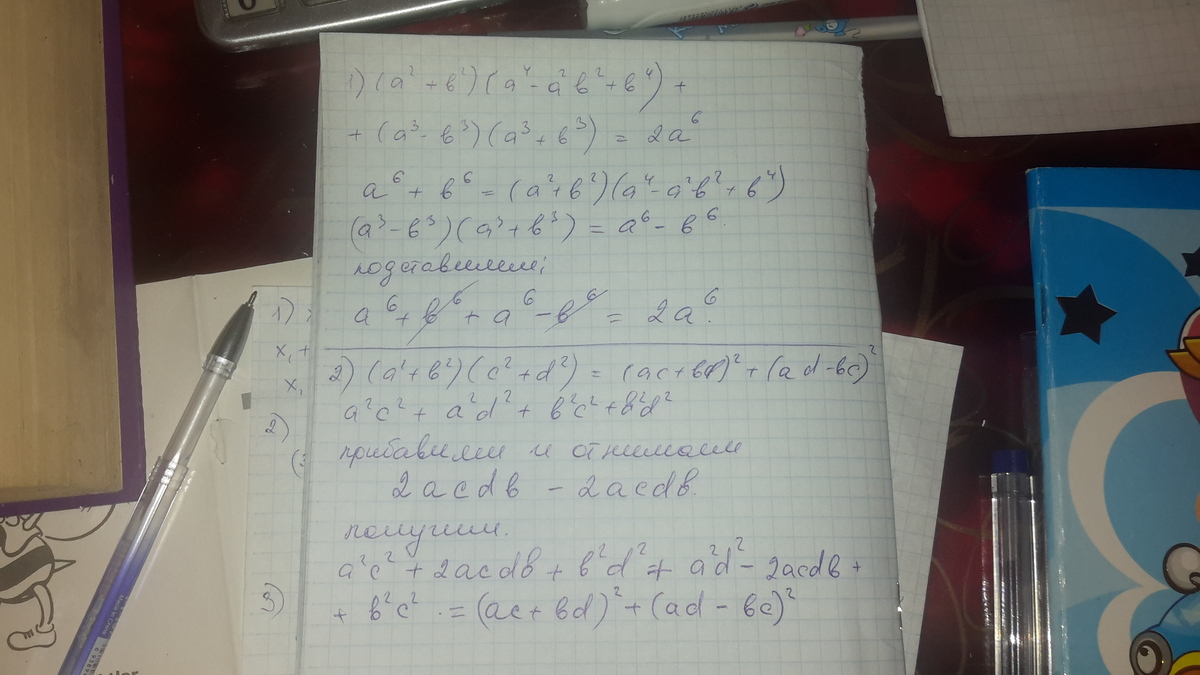 1) (a² + в²)(a⁴ - a²в² + в⁴) +
+ (a³ - в³)(a³ + в³) = 2a⁶
a⁶ + в⁶ = (a² + в²)(a⁴ - a²в² + в⁴)
(a³ - в³)(a³ + в³) = a⁶ - в⁶.
подставим:
a⁶ + в⁶ + a⁶ - в⁶ = 2a⁶.
2) (a² + в²)(c² + d²) = (ac + вd)² + (ad - вc)²
a²c² + a²d² + в²c² + в²d²
прибавим и отнимаем
2acdв - 2acdв.
получим.
a²c² + 2acdв + в²d² + a²d² - 2acdв +
+ в²c² = (ac + вd)² + (ad - вc)²
1)
x₁ +
x₁
2)
(3
3)